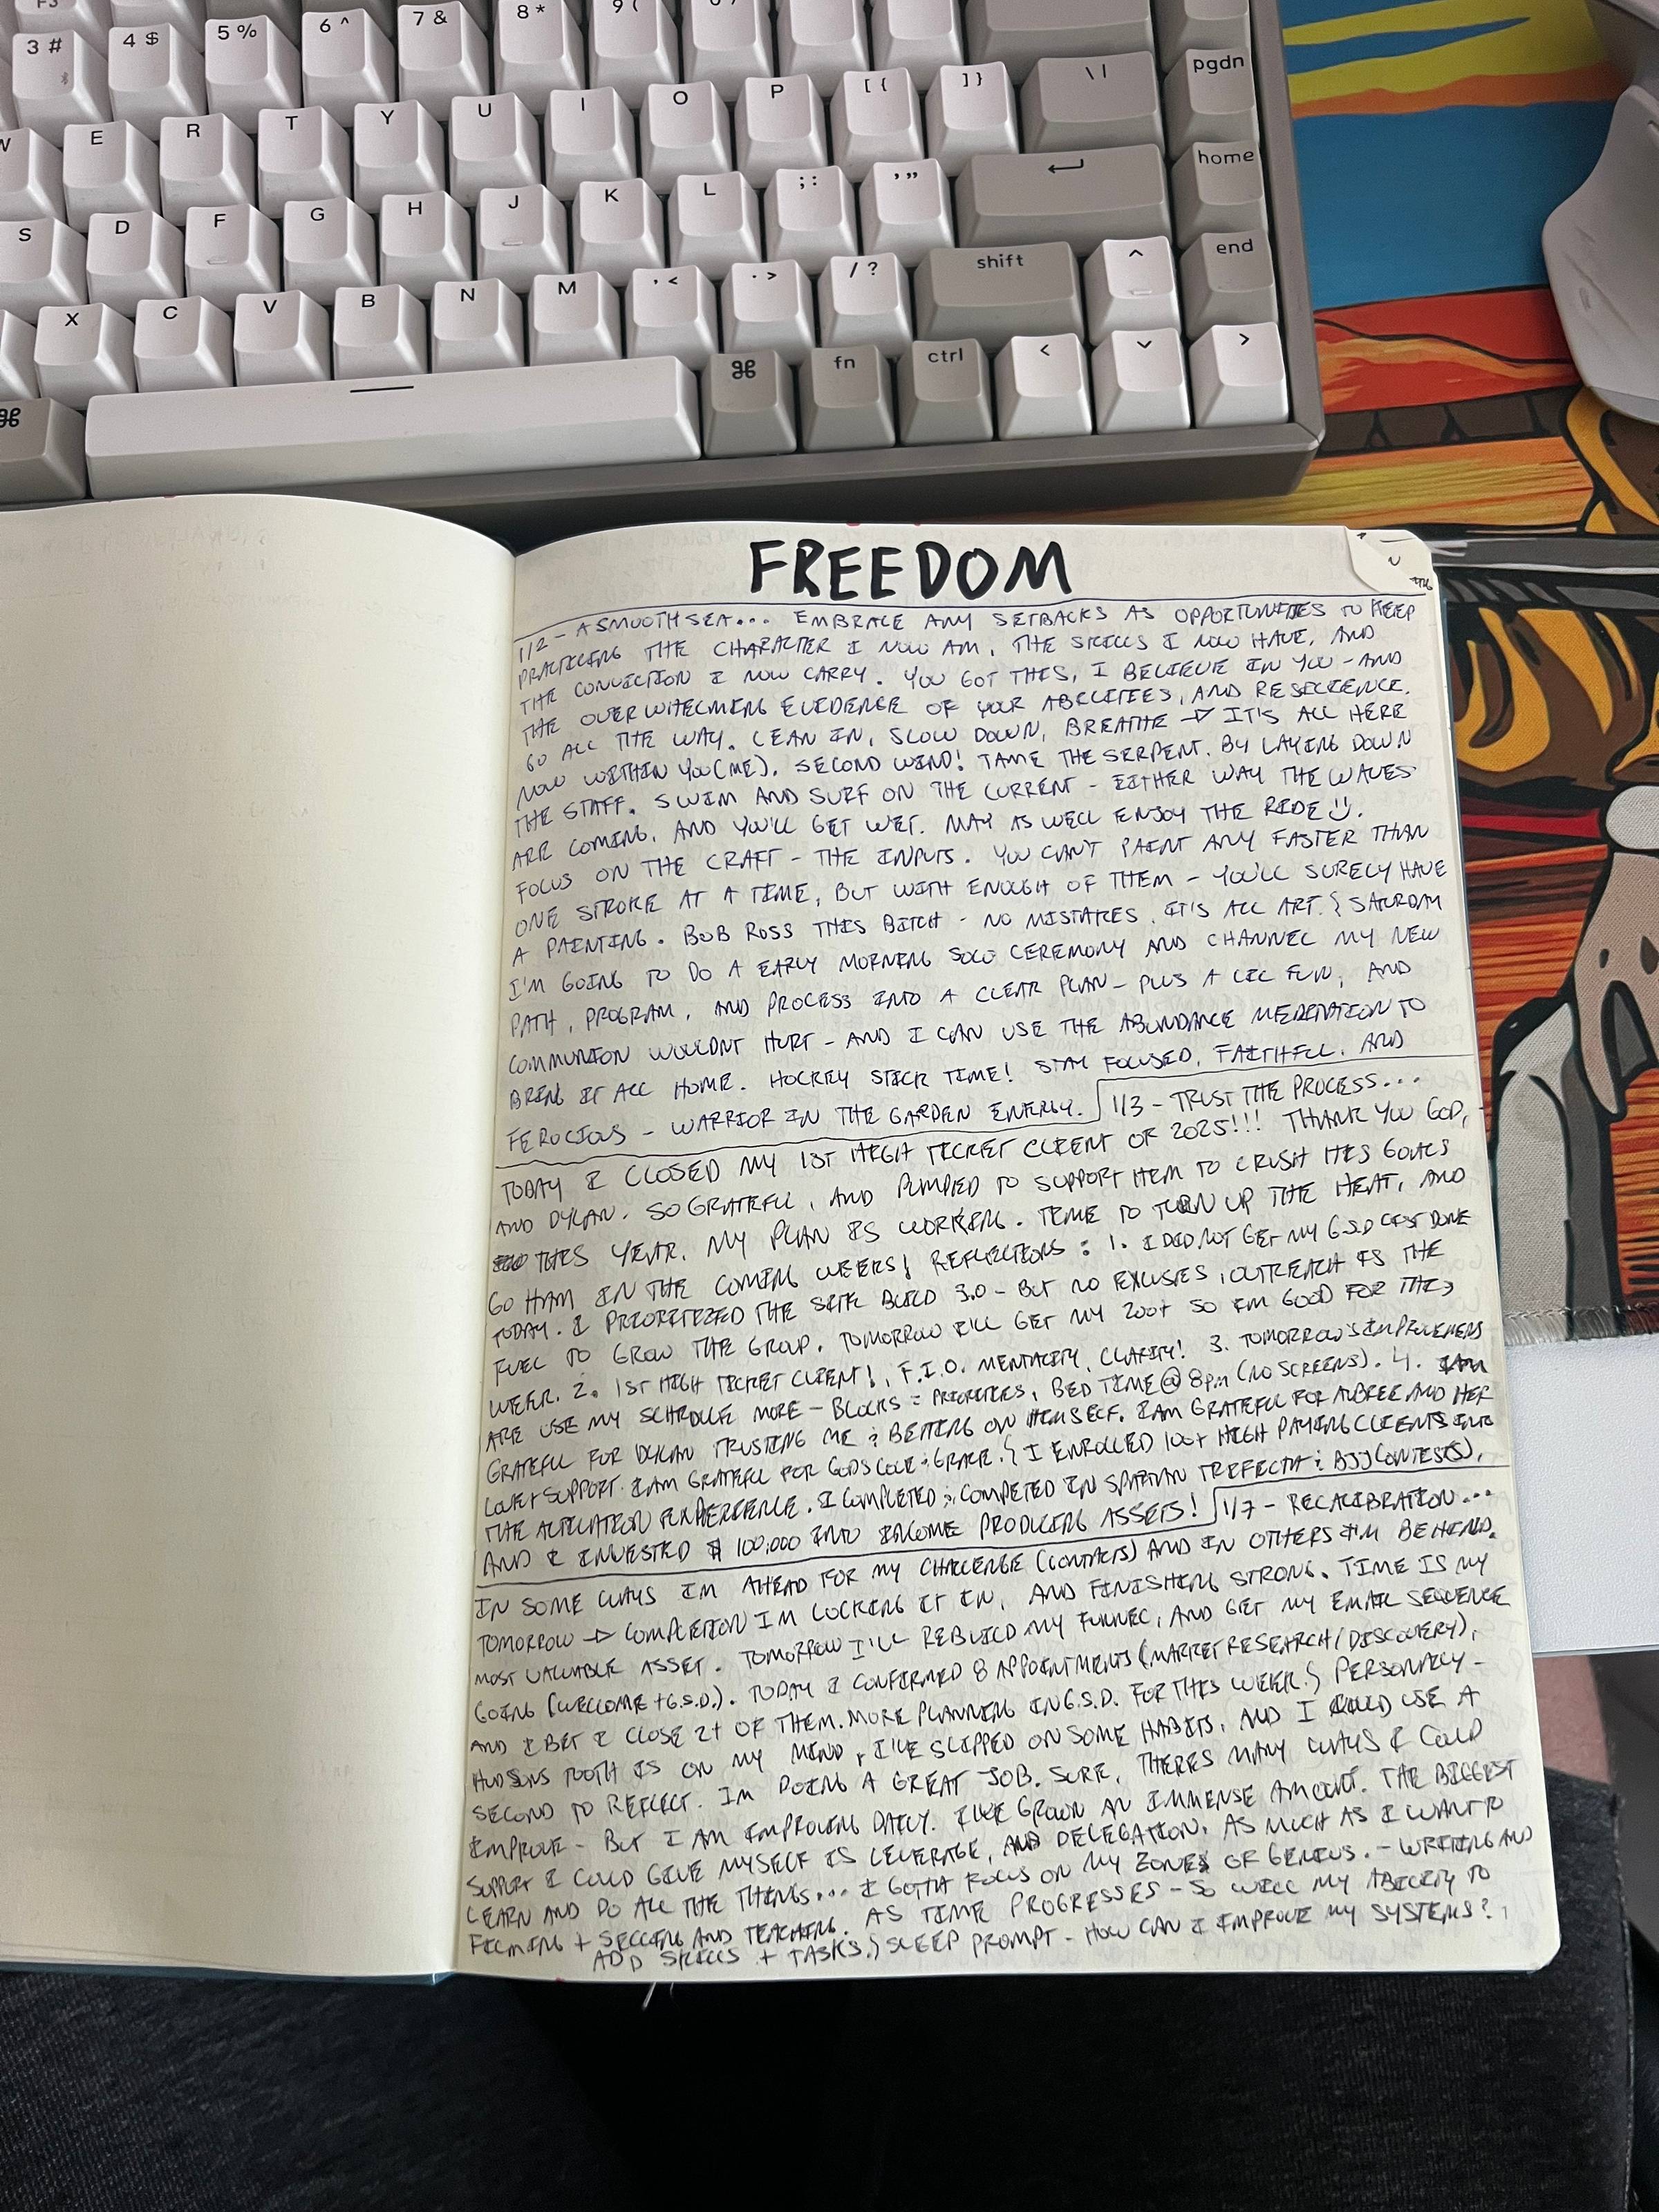 F3
3 #
4 $
5 %
6 ^
7 &
8 *
9 (
W E R T Y U I O P [ { ] } \ |
pgdn
S D F G H J K L ; : ' "
home
X C V B N M , < . > / ?
shift
^
end
⌘
⌘
fn
ctrl
<
>
FREEDOM
1/2 - A SMOOTH SEA... EMBRACE ANY SETBACKS AS OPPORTUNITIES TO KEEP
PRACTICING THE CHARACTER I NOW AM, THE SKILLS I NOW HAVE, AND
THE CONVICTION I NOW CARRY. YOU GOT THIS, I BELIEVE IN YOU - AND
THE OVERWHELMING EVIDENCE OF YOUR ABILITIES, AND RESILIENCE.
GO ALL THE WAY. LEAN IN, SLOW DOWN, BREATHE → IT'S ALL HERE
NOW WITHIN YOU (ME). SECOND WIND! TAME THE SERPENT. BY LAYING DOWN
THE STAFF. SWIM AND SURF ON THE CURRENT - EITHER WAY THE WAVES
ARE COMING, AND YOU'LL GET WET. MAY AS WELL ENJOY THE RIDE :).
FOCUS ON THE CRAFT - THE INPUTS. YOU CAN'T PAINT ANY FASTER THAN
ONE STROKE AT A TIME, BUT WITH ENOUGH OF THEM - YOU'LL SURELY HAVE
A PAINTING. BOB ROSS THIS BITCH - NO MISTAKES. IT'S ALL ART. } SATURDAY
I'M GOING TO DO A EARLY MORNING SOLO CEREMONY AND CHANNEL MY NEW
PATH, PROGRAM, AND PROCESS INTO A CLEAR PLAN - PLUS A LIL FUN, AND
COMMUNION WOULDNT HURT - AND I CAN USE THE ABUNDANCE MEDITATION TO
BRING IT ALL HOME. HOCKEY STICK TIME! STAY FOCUSED, FAITHFUL, AND
FEROCIOUS - WARRIOR IN THE GARDEN ENERGY. 1/3 - TRUST THE PROCESS...
TODAY I CLOSED MY 1ST HIGH TICKET CLIENT OF 2025!!! THANK YOU GOD,
AND DYLAN. SO GRATEFUL, AND PUMPED TO SUPPORT HIM TO CRUSH HIS GOALS
THIS YEAR. MY PLAN IS WORKING. TIME TO TURN UP THE HEAT, AND
GO HAM IN THE COMING WEEKS! REFLECTIONS: 1. I DID NOT GET MY G.S.D LIST DONE
TODAY. I PRIORITIZED THE SITE BUILD 3.0 - BUT NO EXCUSES, OUTREACH IS THE
FUEL TO GROW THE GROUP. TOMORROW I'LL GET MY 200+ SO I'M GOOD FOR THE
WEEK. 2. 1ST HIGH TICKET CLIENT!, F.I.O. MENTALITY, CLARITY! 3. TOMORROW'S IMPROVEMENTS
ARE USE MY SCHEDULE MORE - BLOCKS = PRIORITIES, BED TIME @ 8pm (NO SCREENS). 4. I AM
GRATEFUL FOR DYLAN TRUSTING ME & BETTING ON HIMSELF. I AM GRATEFUL FOR AUBREE AND HER
LOVE + SUPPORT. I AM GRATEFUL FOR GODS LOVE & GRACE. } I ENROLLED 100+ HIGH PAYING CLIENTS INTO
THE EXPERIENCE. I COMPLETED & COMPETED IN SPARTAN TRIFECTA & BJJ CONTEST(S),
AND I INVESTED $ 100,000 INTO INCOME PRODUCING ASSETS! 1/7 - RECALIBRATION...
IN SOME WAYS IM AHEAD FOR MY CHALLENGE (CONTACTS) AND IN OTHERS I'M BEHIND.
TOMORROW → COMPLETION IM LOCKING IT IN, AND FINISHING STRONG. TIME IS MY
MOST VALUABLE ASSET. TOMORROW I'LL REBUILD MY FUNNEL, AND GET MY EMAIL SEQUENCE
GOING (WELCOME + G.S.D.). TODAY I CONFIRMED 8 APPOINTMENTS (MARKET RESEARCH/DISCOVERY),
AND I BET I CLOSE 2+ OF THEM. MORE PLANNING IN G.S.D. FOR THIS WEEK. } PERSONALLY -
HUDSONS TOOTH IS ON MY MIND, I'VE SLIPPED ON SOME HABITS, AND I COULD USE A
SECOND TO REFLECT. IM DOING A GREAT JOB. SURE, THERES MANY WAYS I COULD
IMPROVE - BUT I AM IMPROVING DAILY. I'VE GROWN AN IMMENSE AMOUNT. THE BIGGEST
SUPPORT I COULD GIVE MYSELF IS LEVERAGE, AND DELEGATION. AS MUCH AS I WANT TO
LEARN AND DO ALL THE THINGS... I GOTTA FOCUS ON MY ZONES OF GENIUS. - WRITING AND
FILMING + SELLING AND TEACHING. AS TIME PROGRESSES - SO WILL MY ABILITY TO
ADD SKILLS + TASKS. } SLEEP PROMPT - HOW CAN I IMPROVE MY SYSTEMS?